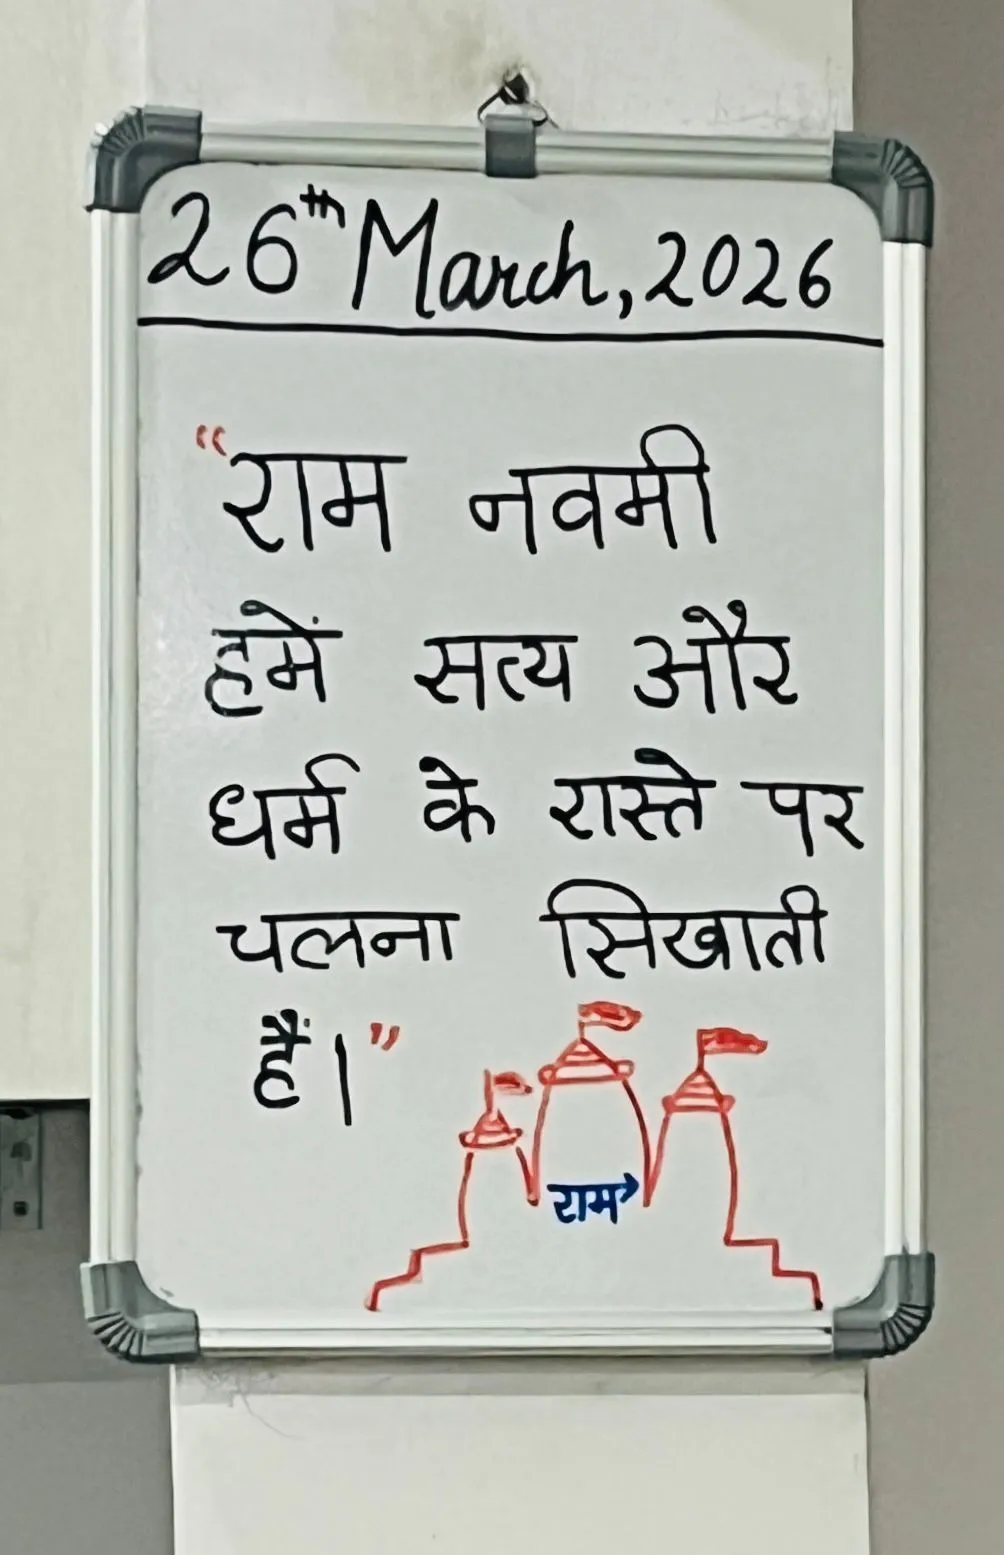 26th March, 2026
“राम नवमी
हमें सत्य और
धर्म के रास्ते पर
चलना सिखाती
हैं।”
राम→